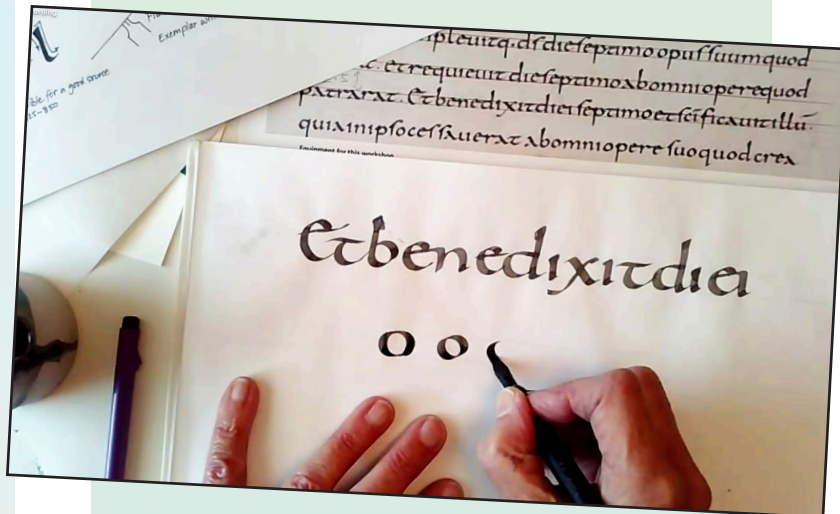 Exemplar
ible for a good source
25-850
pleuitq. dſdieſeptimo opuſſuumquod
etrequieuit dieſeptimoabomnioperequod
patrarat. Etbenedixitdieiſeptimoetſcificauitillū
quiainipſoceſſauerat abomniopere ſuoquodcrea
Equipment for this workshop
Etbenedixitdiei
o o